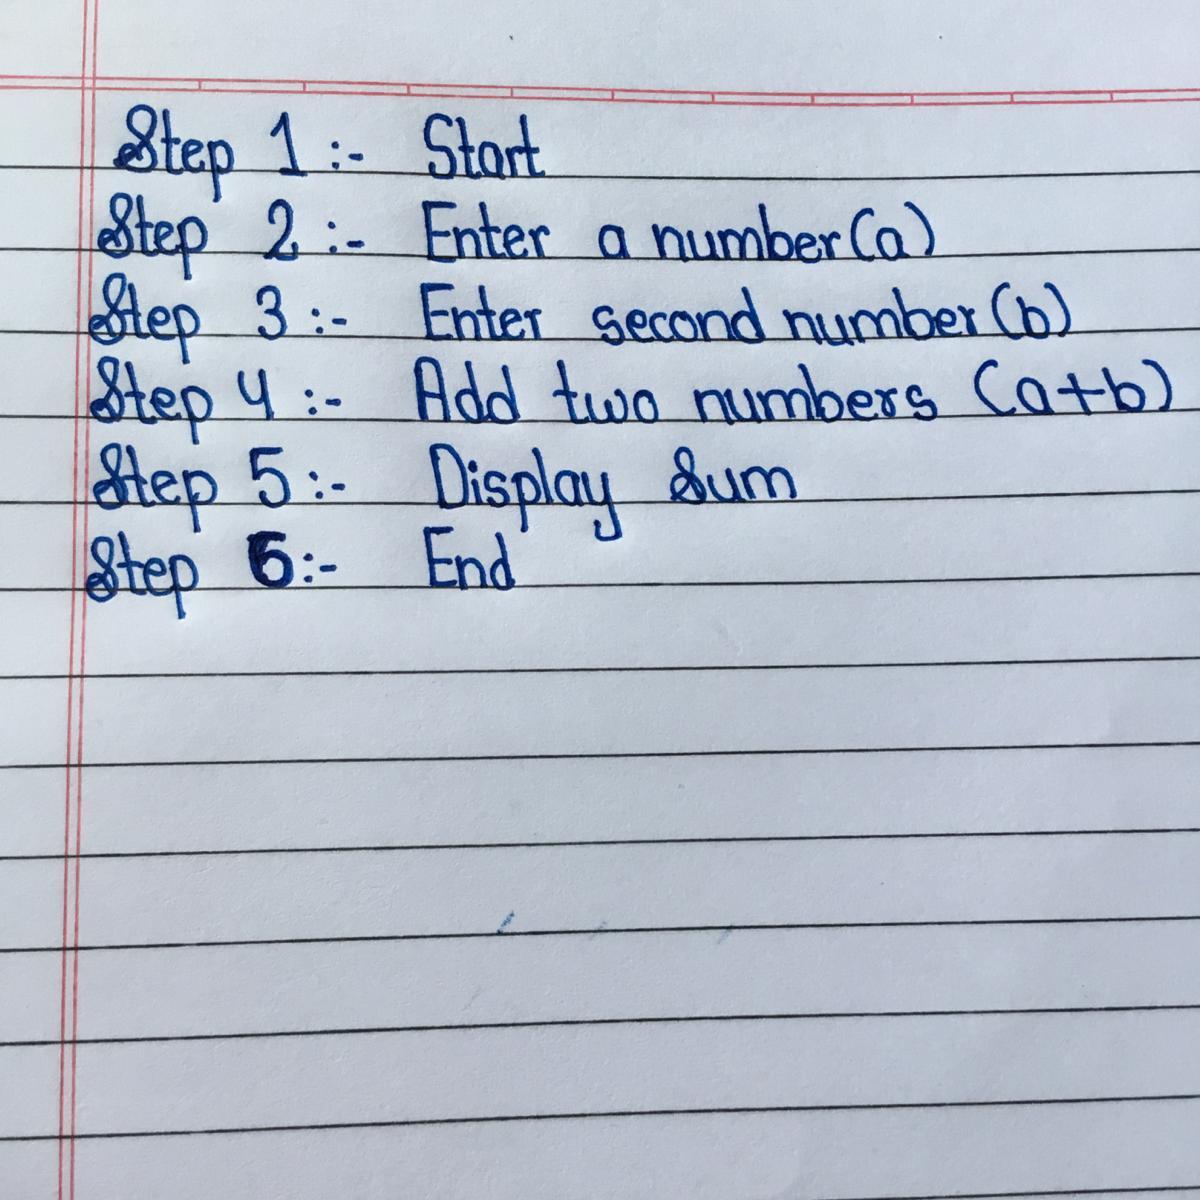 Step 1 :- Start
Step 2 :- Enter a number(a)
Step 3 :- Enter second number(b)
Step 4 :- Add two numbers (a+b)
Step 5 :- Display Sum
Step 6 :- End